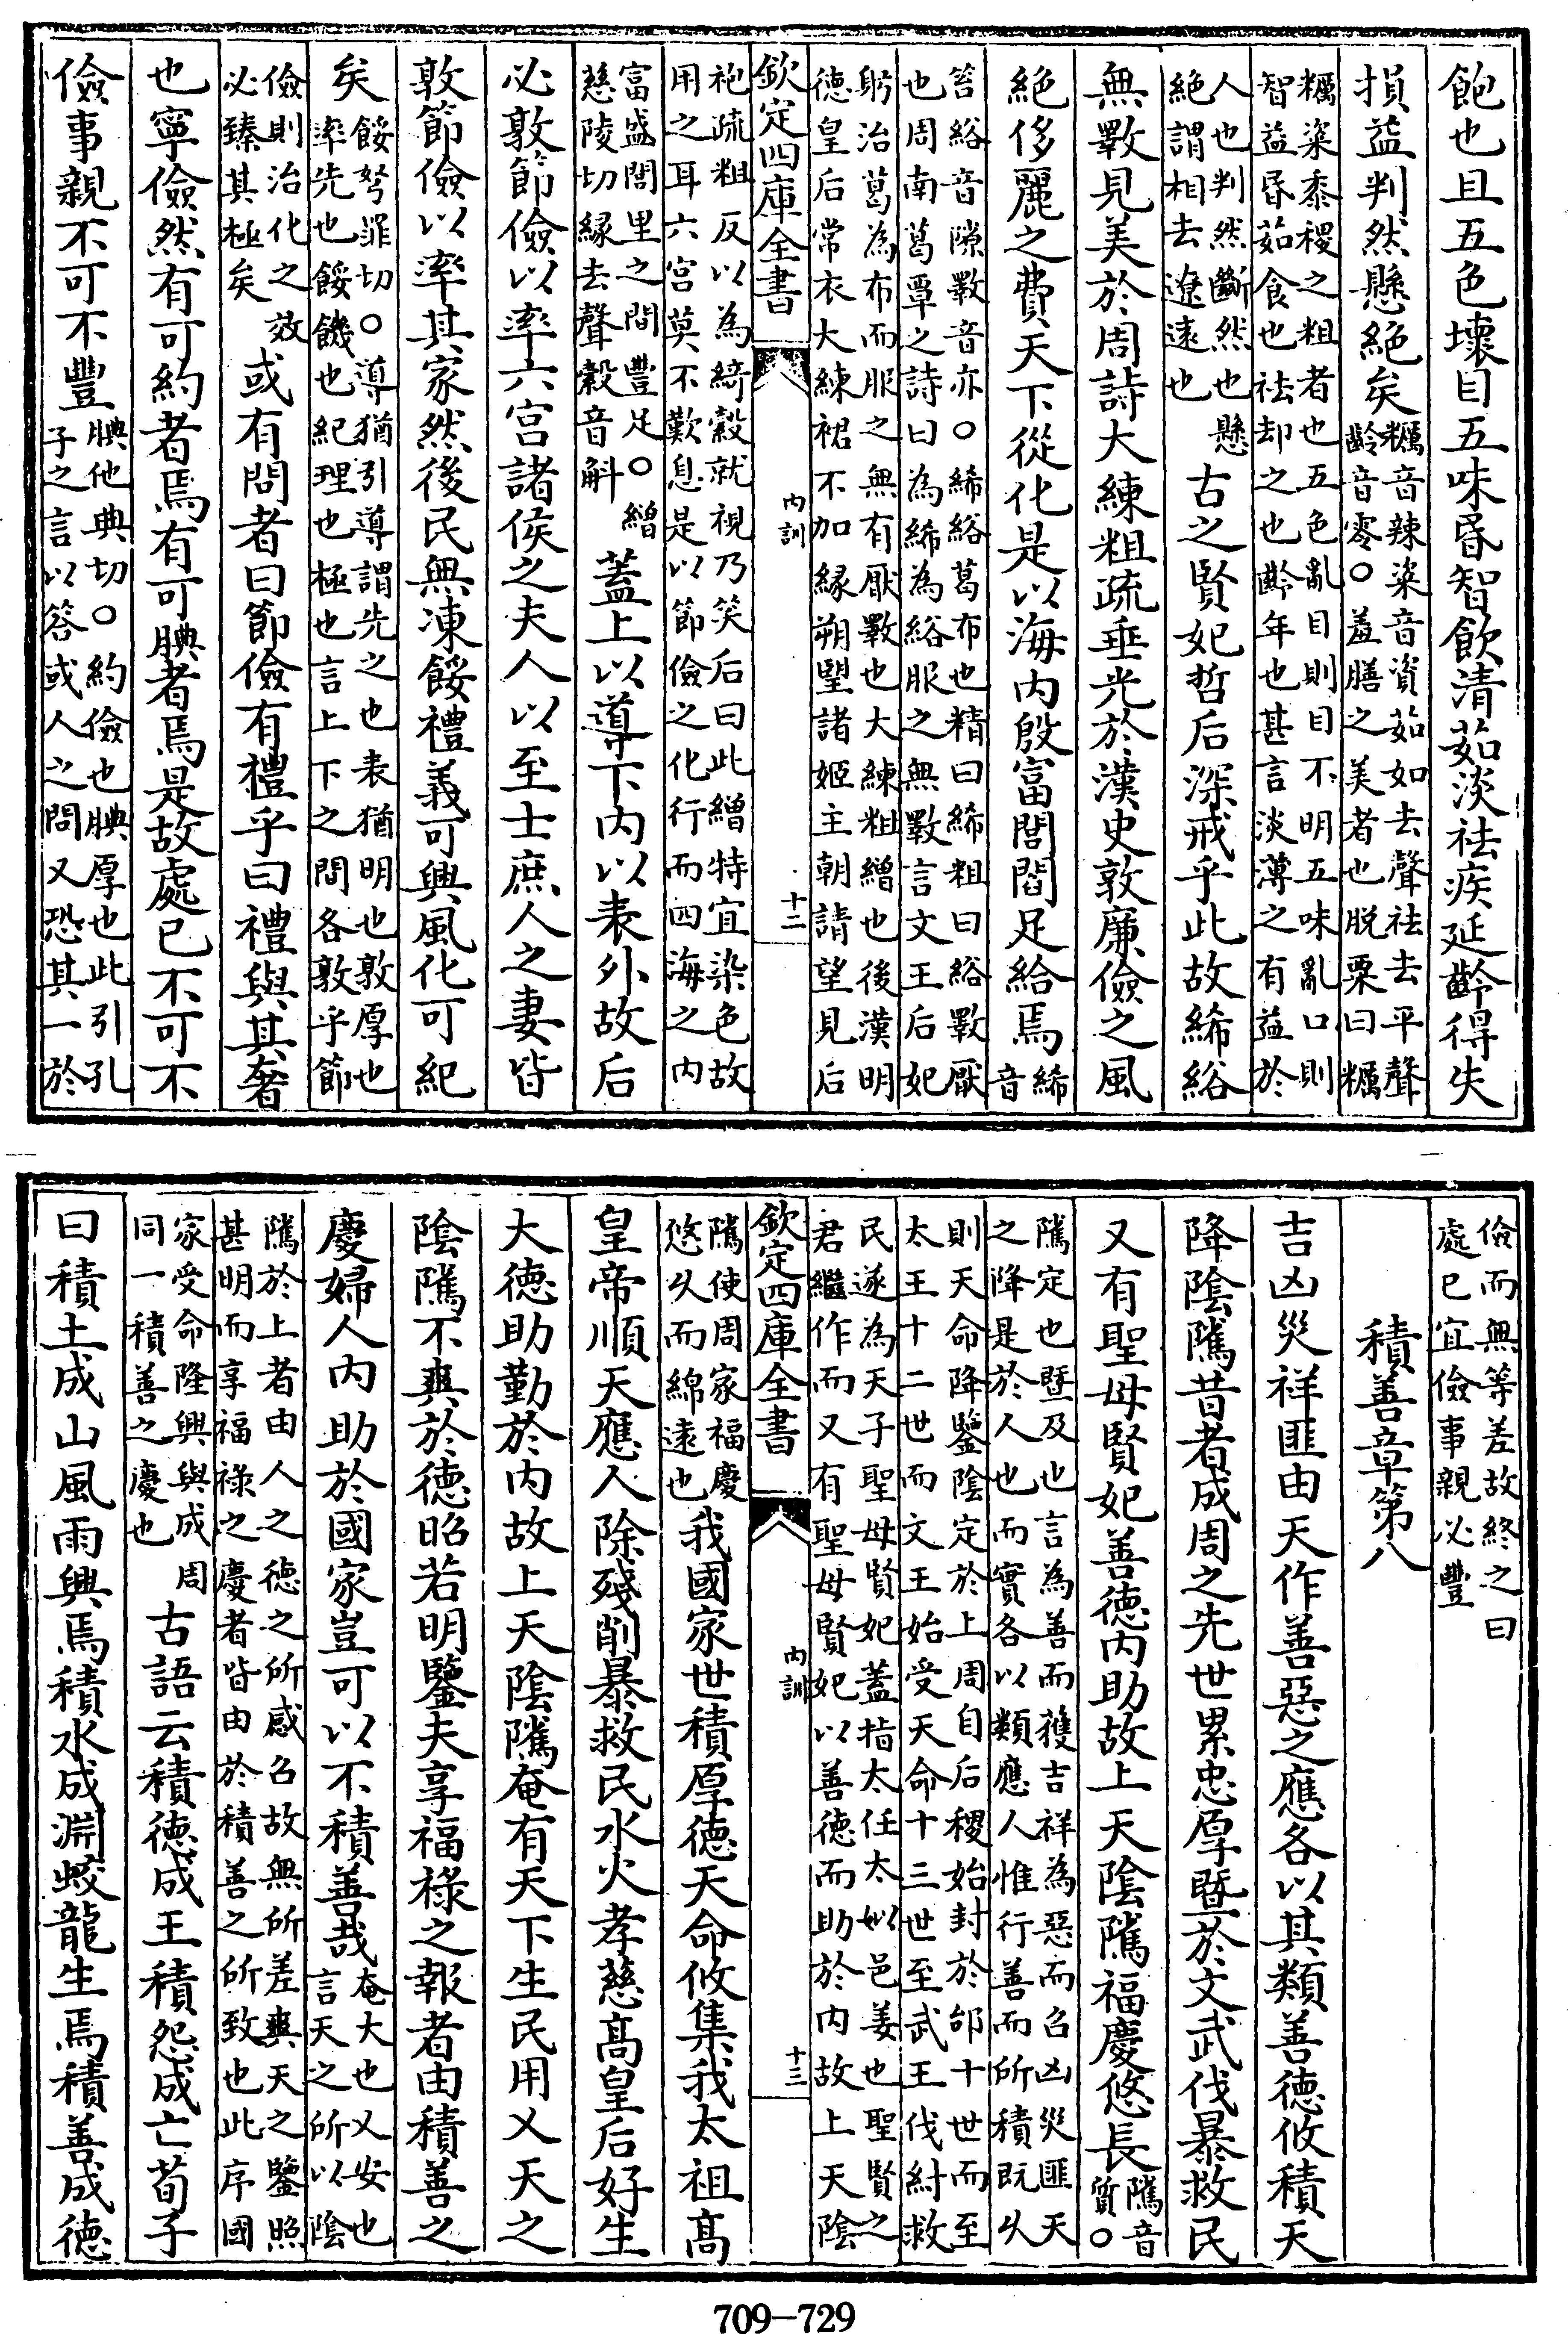 飽也且五色壞目五味昏智飲清茹淡祛疾延齡得失
損益判然懸絕矣糲音辣粢音資茹如去聲祛去平聲
齡音零○羞膳之美者也脱粟曰糲
糲粢黍稷之粗者也五色亂目則目不明五味亂口則
智益昏茹食也祛却之也齡年也甚言淡薄之有益於
人也判然斷然也懸
絕謂相去遼遠也古之賢妃哲后深戒乎此故絺綌
無斁見美於周詩大練粗疏垂光於漢史敦廉儉之風
絕侈麗之費天下從化是以海内殷富閭閻足給焉絺
音
綌音隙斁音亦○絺綌葛布也精曰絺粗曰綌斁厭
也周南葛覃之詩曰為絺為綌服之無斁言文王后妃
躬治葛為布而服之無有厭斁也大練粗繒也後漢明
德皇后常衣大練裙不加縁朔望諸姬主朝請望見后
欽定四庫全書
内訓
十二
袍疏粗反以為綺縠就視乃笑后曰此繒特宜染色故
用之耳六宫莫不歎息是以節儉之化行而四海之内
富盛閭里之間豐足○繒
慈陵切縁去聲縠音斛蓋上以導下内以表外故后
必敦節儉以率六宫諸侯之夫人以至士庶人之妻皆
敦節儉以率其家然後民無凍餒禮義可興風化可紀
矣餒弩罪切○導猶引導謂先之也表猶明也敦厚也
率先也餒饑也紀理也極也言上下之間各敦乎節
儉則治化之效
必臻其極矣或有問者曰節儉有禮乎曰禮與其奢
也寧儉然有可約者焉有可腆者焉是故處已不可不
儉事親不可不豐腆他典切○約儉也腆厚也此引孔
子之言以答或人之問又恐其一於
儉而無等差故終之曰
處已宜儉事親必豐
積善章第八
吉凶災祥匪由天作善惡之應各以其類善德攸積天
降陰隲昔者成周之先世累忠厚暨於文武伐暴救民
又有聖母賢妃善德内助故上天陰隲福慶悠長隲音
質○
隲定也暨及也言為善而獲吉祥為惡而召凶災匪天
之降是於人也而實各以類應人惟行善而所積既乆
則天命降鑒陰定於上周自后稷始封於邰十世而至
太王十二世而文王始受天命十三世至武王伐紂救
民遂為天子聖母賢妃蓋指太任太姒邑姜也聖賢之
君繼作而又有聖母賢妃以善德而助於内故上天陰
欽定四庫全書
内訓
十三
隲使周家福慶
悠乆而綿遠也我國家世積厚德天命攸集我太祖髙
皇帝順天應人除殘削暴救民水火孝慈髙皇后好生
大德助勤於内故上天陰隲奄有天下生民用乂天之
陰隲不爽於德昭若明鑒夫享福禄之報者由積善之
慶婦人内助於國家豈可以不積善哉奄大也乂安也
言天之所以陰
隲於上者由人之德之所感召故無所差爽天之鑒照
甚明而享福禄之慶者皆由於積善之所致也此序國
家受命隆興與成周
同一積善之慶也古語云積德成王積怨成亡荀子
曰積土成山風雨興焉積水成淵蛟龍生焉積善成德
709—729